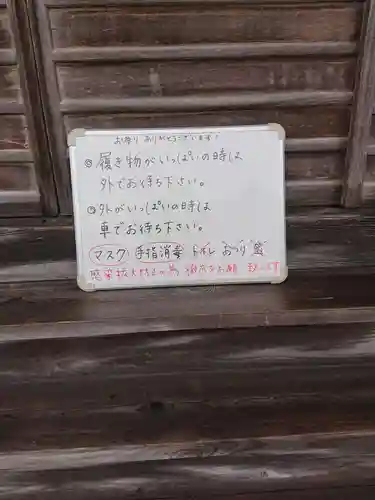 お参りありがとうございます!
履き物がいっぱいの時は
外でお待ち下さい。
外がいっぱいの時は
車でお待ち下さい。
マスク 手指消毒 トイレ
感染拡大防止の為 お願